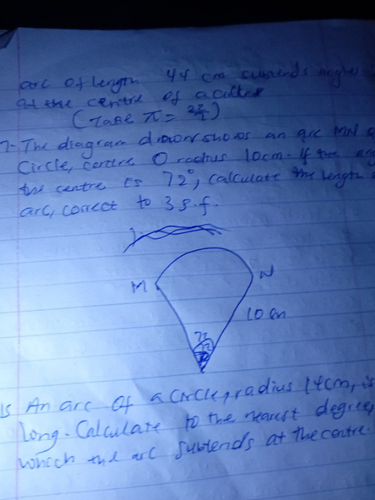 arc of length 44 cm subtends
at the centre of a circle
(Take π = 22/7)
7. The diagram drawn shows an arc MN of
Circle, centre O radius 10cm. If the
the centre is 72°, calculate the length
arc, correct to 3 s.f.
M
N
10cm
72
An arc of a circle, radius 14cm, is
long. Calculate to the nearest degree,
which the arc subtends at the centre.